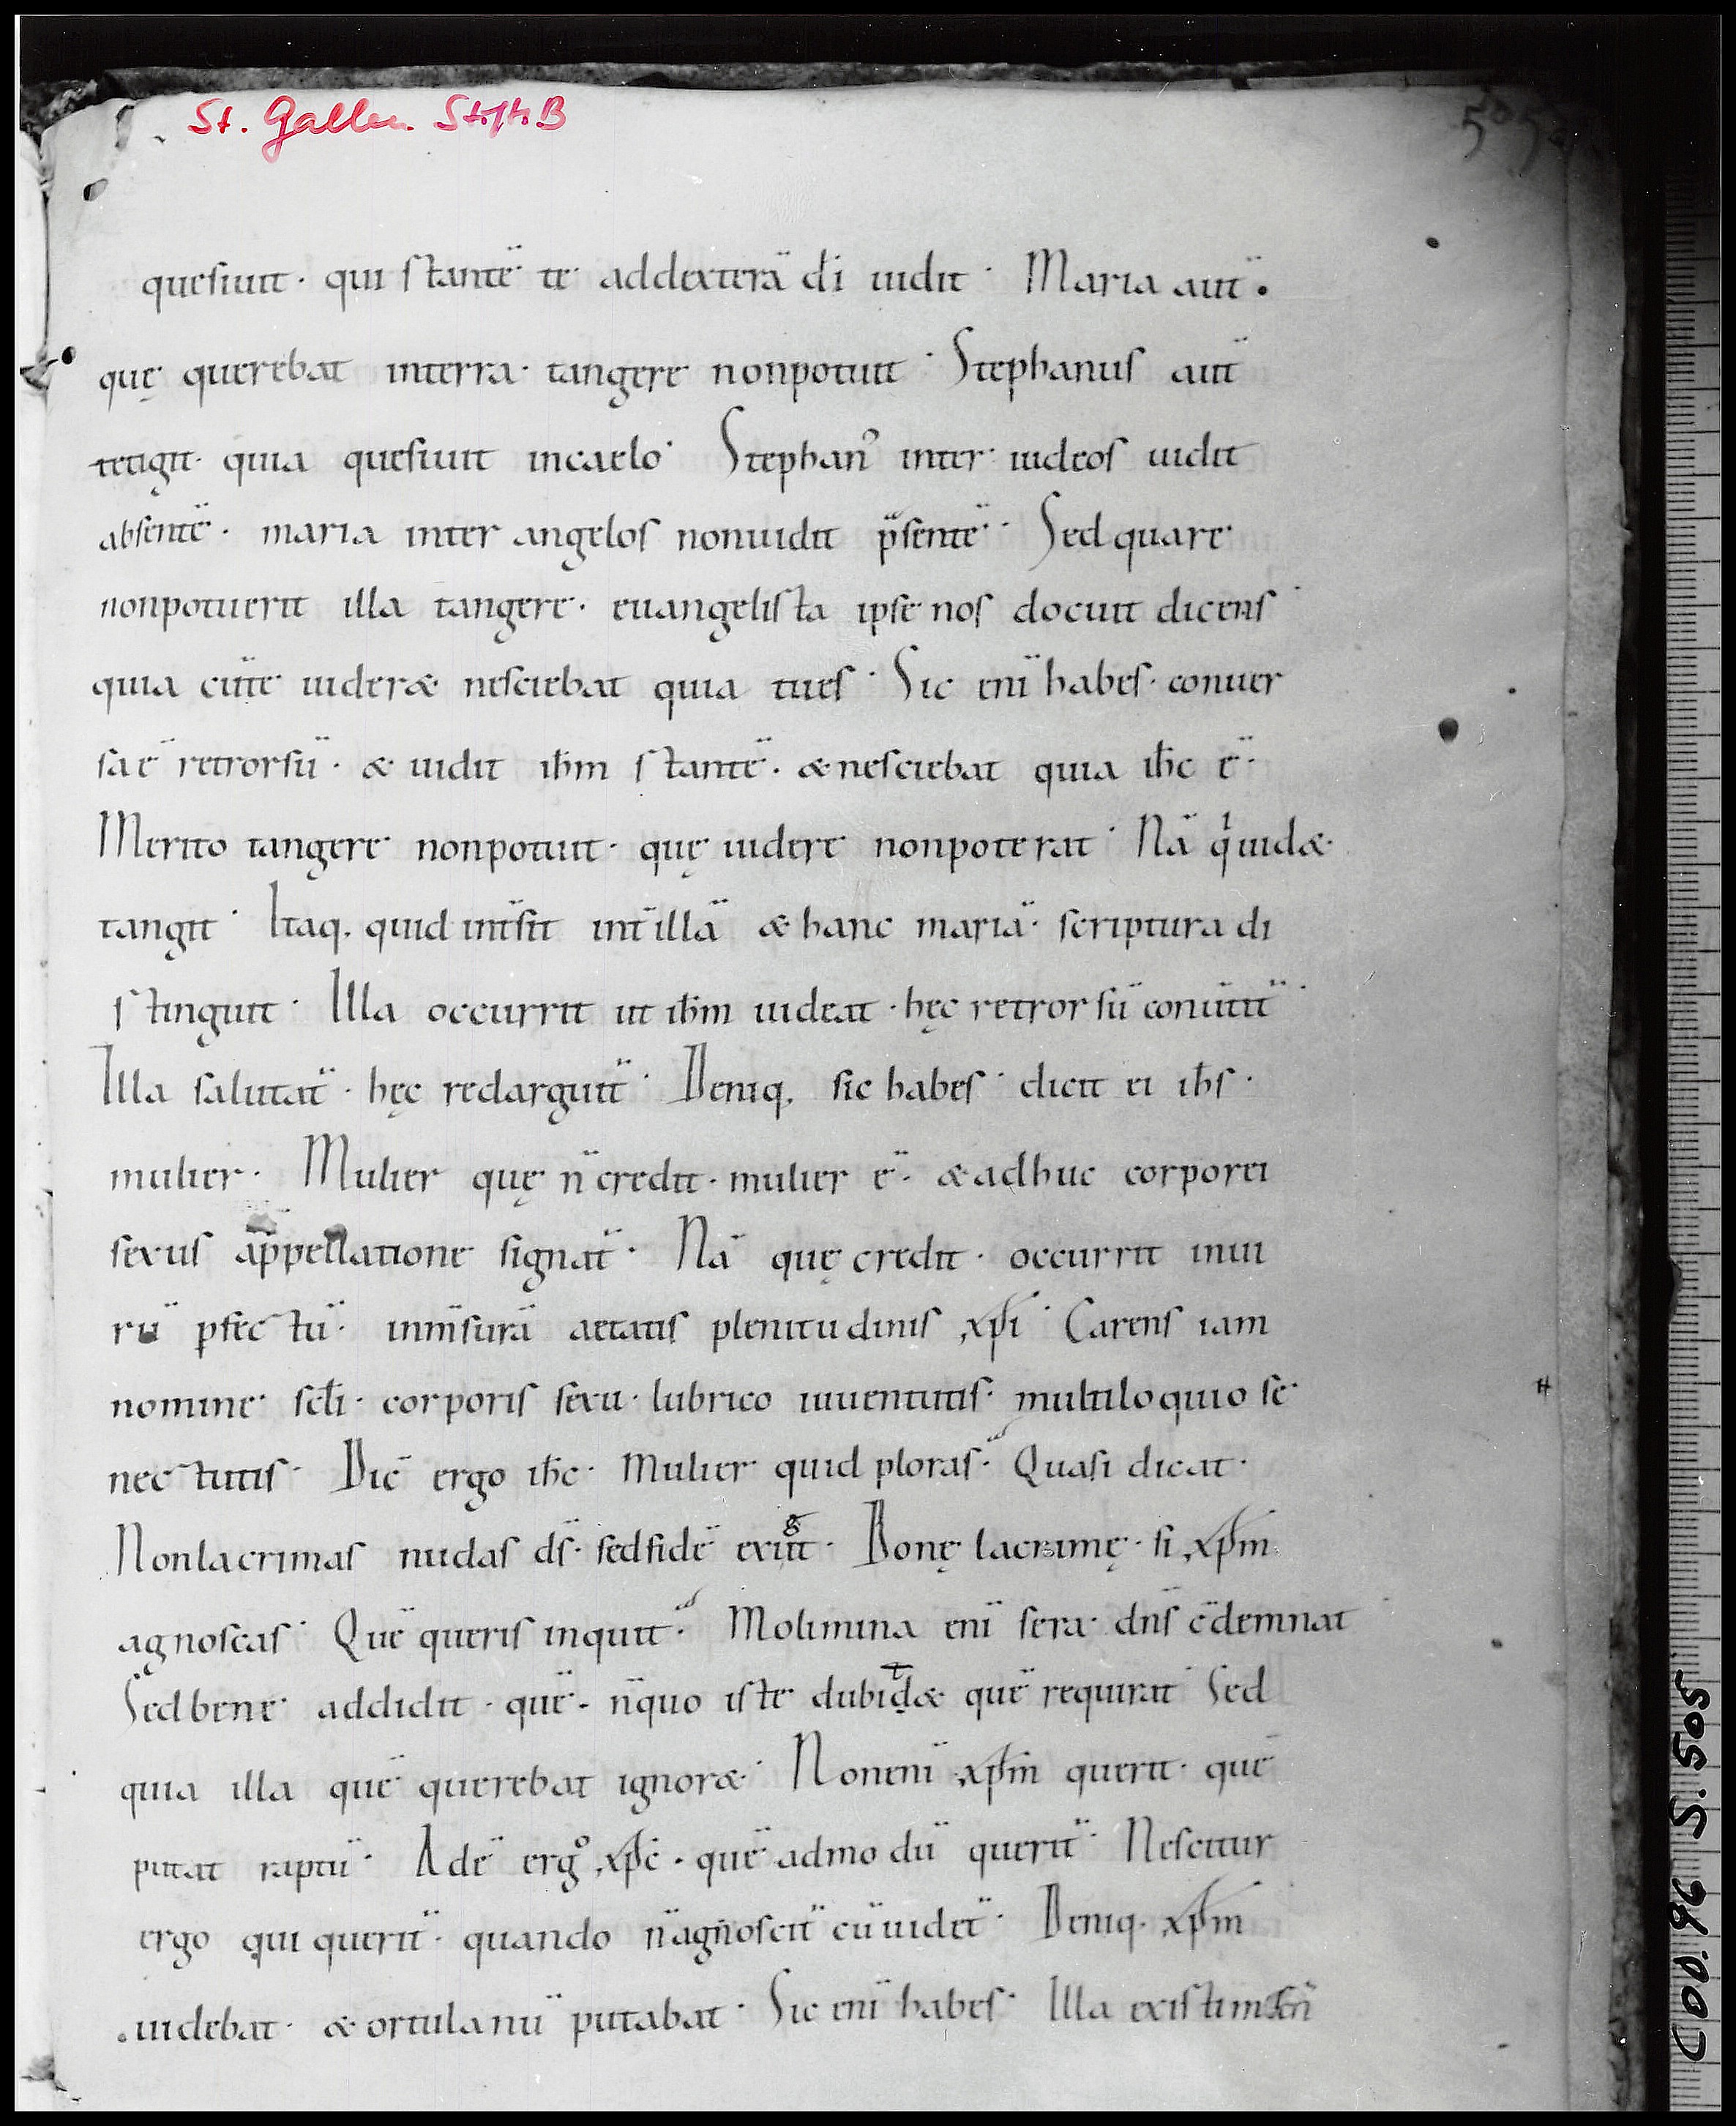 St. Gallen StiftsB
505
quesiuit · qui stantē te addexterā dī uidit · Maria aut̄ .
quę querebat interra · tangere nonpotuit · Stephanus aut̄
tetigit · quia quesiuit incaelo · Stephan᾿ inter iudeos uidit
absentē · maria inter angelos nonuidit p̄sentē · Sed quare
nonpotuerit illa tangere · euangelista ipse nos docuit dicens ·
quia cūte uideræ nesciebat quia tues · Sic enī habes · conuer
sa ē retrorsū · æ uidit ih̄m stantē · ænesciebat quia ih̄c ē ·
Merito tangere nonpotuit · quę uidere nonpoterat · Nā qͥ uidæ ·
tangit · Itaq. quid int̄sit int̄ illā æ hanc mariā · scriptura di
stinguit · Illa occurrit ut ih̄m uideat · hęc retrorsū conūtit̄ ·
Illa salutat̄ · hęc redarguit̄ · Deniq. sic habes · dicit ei ih̄s ·
mulier · Mulier quę n̄ credit · mulier ē · æadhuc corporei
sexus appellatione signat̄ · Nā quę credit · occurrit inui
rū ꝑfectū · inm̄surā aetatis plenitudinis xp̄i · Carens iam
nomine sc̄li · corporis sexu · lubrico iuuentutis · multiloquio se
nectutis · Dic̄ ergo ih̄c · Mulier quid ploras · Quasi dicat ·
Nonlacrimas nudas ds̄ · sedfidē exigit · Bonę lacrimę · si xp̄m
agnoscas · Quē queris inquit · Molimina enī sera dn̄s c̄demnat
Sed bene addidit · quē · n̄quo iste dubitæ quē requirat · Sed
quia illa quē querebat ignoræ · Nonenī xp̄m querit · quē
putat raptū · Adē ergͦ xp̄c · quē admodū querit̄ · Nescitur
ergo qui querit̄ · quando n̄agnoscit̄ cū uidet̄ · Deniq. xp̄m
uidebat · æ ortulanū putabat · Sic enī habes · Illa
COD. 96 S. 505